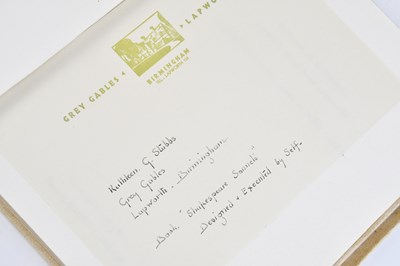 GREY GABLES • LAPWO
BIRMINGHAM
Kathleen G Stubbs
Grey Gables
Lapworth - Birmingham
Book "Shakespeare Sonnets"
Designed & Executed by Self.